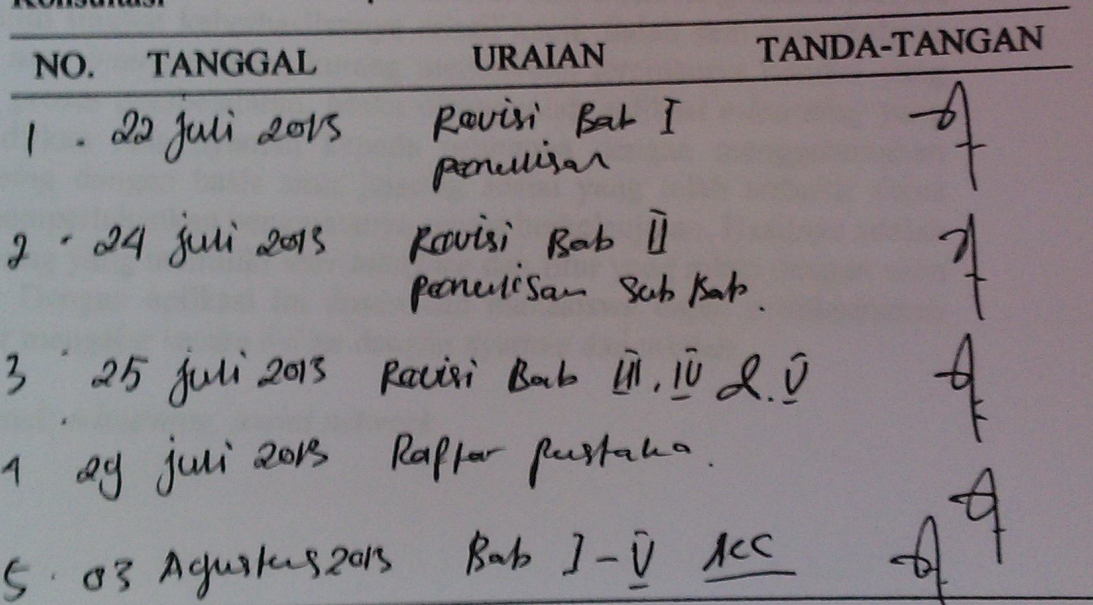 Konsultasi
NO. TANGGAL URAIAN TANDA-TANGAN
1. 22 Juli 2013 Revisi Bab I
penulisan
2. 24 Juli 2013 Revisi Bab II
penulisan Sub Bab.
3 25 Juli 2013 Revisi Bab III, IV & V
4 29 Juli 2013 Daftar pustaka.
5. 03 Agustus 2013 Bab I - V ACC